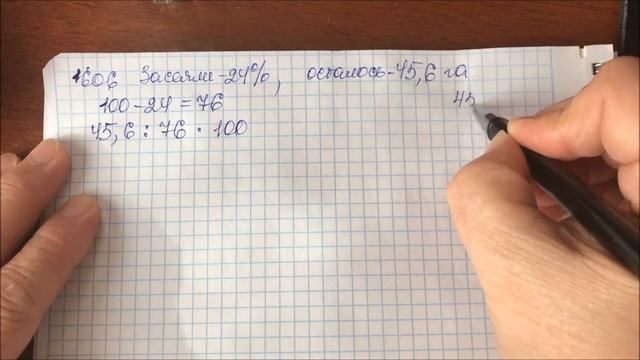 1606 Засеяли - 24%, осталось - 45,6 га
100 - 24 = 76
45
45,6 : 76 · 100